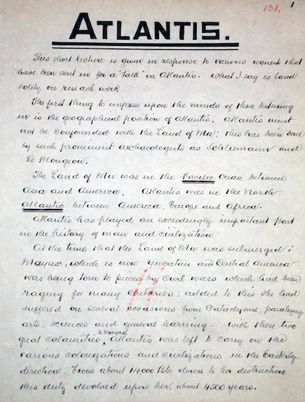 131. 1
ATLANTIS.
This short lecture is given in response to various requests that
have been sent in for a "talk" on Atlantis. What I say is based
solely on research work.
The first thing to impress upon the minds of those listening
in is the geographical position of Atlantis. Atlantis must
not be confounded with the Land of Mu: this has been done
by such prominent archaeologists as Schliemann and
Le Plongeon.
The Land of Mu was in the Pacific Ocean between
Asia and America. Atlantis was in the North
Atlantic between America, Europe and Africa.
Atlantis has played an exceedingly important part
in the history of man and civilization.
At the time that the Land of Mu was submerged;
Mayax, which is now Yucatan and Central America
was being torn to pieces by Civil wars which had been
raging for many centuries: added to this she had
suffered on several occasions from Cataclysms, paralyzing
arts, sciences and general learning. With these two
great calamities to Mayax, Atlantis was left to carry on the
various colonizations and civilizations in the Easterly
direction. From about 14000 B.C. down to her destruction
this duty devolved upon her, about 4500 years.